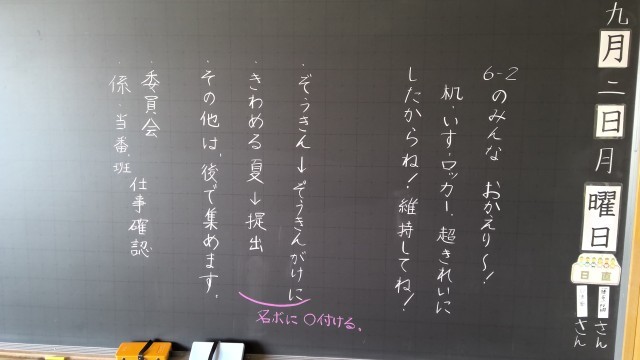 九月二日月曜日
日直
さん
さん
6-2のみんな おかえり〜!
机・いす・ロッカー、超きれいに
したからね!維持してね!
・ぞうきん→ぞうきんがけに
・きわめる夏→提出
名ボに○付ける。
・その他は、後で集めます。
・委員会
係・当番・班
仕事確認